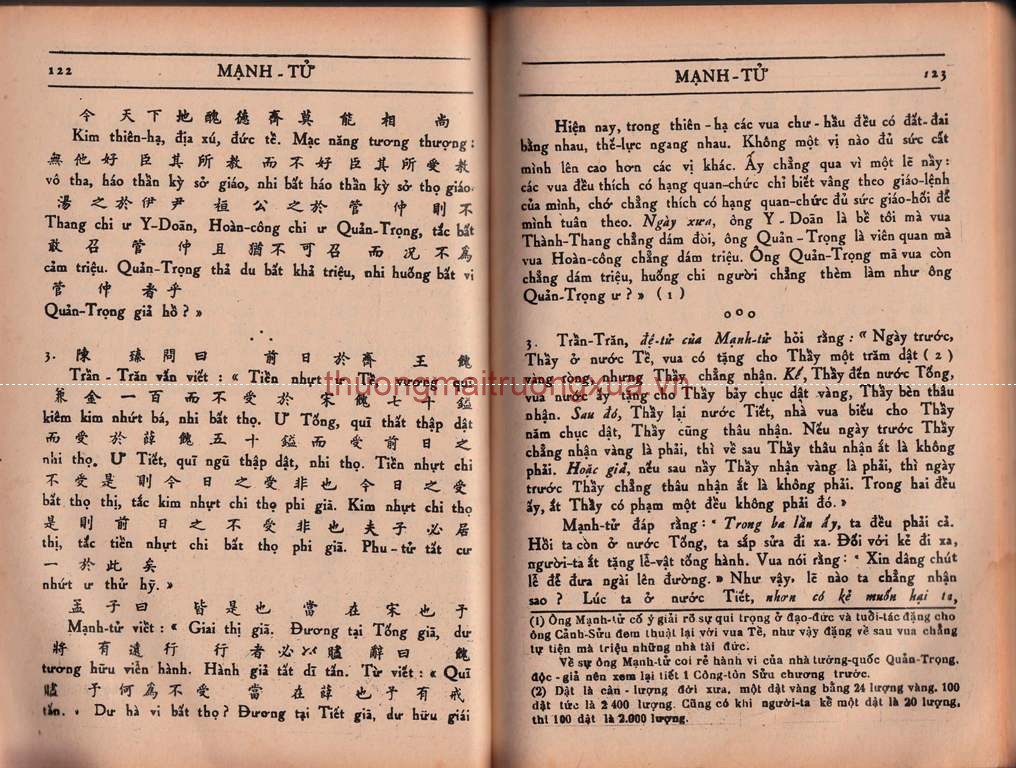 122 MẠNH - TỬ
今 天 下 地 醜 德 齊 莫 能 相 尚
Kim thiên-hạ, địa xú, đức tề. Mạc năng tương thượng:
無 他 好 臣 其 所 教 而 不 好 臣 其 所 受 教
vô tha, háo thần kỳ sở giáo, nhi bất háo thần kỳ sở thọ giáo.
湯 之 於 伊 尹 桓 公 之 於 管 仲 則 不
Thang chi ư Y-Doãn, Hoàn-công chi ư Quản-Trọng, tắc bất
敢 召 管 仲 且 猶 不 可 召 而 况 不 為
cảm triệu. Quản-Trọng thả du bất khả triệu, nhi huống bất vi
管 仲 者 乎
Quản-Trọng giả hồ? »
3. 陳 臻 問 曰 前 日 於 齊 王 餽
Trần - Trăn vấn viết : « Tiền nhựt ư Tề, vương quĩ
兼 金 一 百 而 不 受 於 宋 餽 七 十 鎰
kiêm kim nhứt bá, nhi bất thọ. Ư Tống, quĩ thất thập dật
而 受 於 薛 餽 五 十 鎰 而 受 前 日 之
nhi thọ. Ư Tiết, quĩ ngũ thập dật, nhi thọ. Tiền nhựt chi
不 受 是 則 今 日 之 受 非 也 今 日 之 受
bất thọ thị, tắc kim nhựt chi thọ phi giã. Kim nhựt chi thọ
是 則 前 日 之 不 受 非 也 夫 子 必 居
thị, tắc tiền nhựt chi bất thọ phi giã. Phu-tử tất cư
一 於 此 矣
nhứt ư thử hỹ. »
孟 子 曰 皆 是 也 當 在 宋 也 予
Mạnh-tử viết : « Giai thị giã. Đương tại Tống giã, dư
將 有 遠 行 行 者 必 以 贐 辭 曰 餽
tương hữu viễn hành. Hành giả tất dĩ tẩn. Từ viết : « Quĩ
贐 予 何 為 不 受 當 在 薛 也 予 有 戒
tẩn. » Dư hà vi bất thọ? Đương tại Tiết giã, dư hữu giái
MẠNH-TỬ 123
Hiện nay, trong thiên-hạ các vua chư-hầu đều có đất-đai
bằng nhau, thế-lực ngang nhau. Không một vị nào đủ sức cất
mình lên cao hơn các vị khác. Ấy chẳng qua vì một lẽ nầy:
các vua đều thích có hạng quan-chức chỉ biết vâng theo giáo-lệnh
của mình, chớ chẳng thích có hạng quan-chức đủ sức giáo-hối để
mình tuân theo. Ngày xưa, ông Y - Doãn là bề tôi mà vua
Thành-Thang chẳng dám đòi, ông Quản - Trọng là viên quan mà
vua Hoàn-công chẳng dám triệu. Ông Quản-Trọng mà vua còn
chẳng dám triệu, huống chi người chẳng thèm làm như ông
Quản-Trọng ư ? » (1)
ooo
3. Trần-Trăn, đệ-tử của Mạnh-tử hỏi rằng : « Ngày trước,
Thầy ở nước Tề, vua có tặng cho Thầy một trăm dật (2)
vàng ròng, nhưng Thầy chẳng nhận. Kế, Thầy đến nước Tống,
vua nước ấy tặng cho Thầy bảy chục dật vàng, Thầy bèn thâu
nhận. Sau đó, Thầy lại nước Tiết, nhà vua biếu cho Thầy
năm chục dật, Thầy cũng thâu nhận. Nếu ngày trước Thầy
chẳng nhận vàng là phải, thì về sau Thầy thâu nhận ắt là không
phải. Hoặc giả, nếu sau nầy Thầy nhận vàng là phải, thì ngày
trước Thầy chẳng thâu nhận ắt là không phải. Trong hai đều
ấy, ắt Thầy có phạm một đều không phải đó. »
Mạnh-tử đáp rằng : « Trong ba lần ấy, ta đều phải cả.
Hồi ta còn ở nước Tống, ta sắp sửa đi xa. Đối với kẻ đi xa,
người-ta ắt tặng lễ-vật tống hành. Vua nói rằng : « Xin dâng chút
lễ để đưa ngài lên đường. » Như vậy, lẽ nào ta chẳng nhận
sao ? Lúc ta ở nước Tiết, nhơn có kẻ muốn hại ta,
(1) Ông Mạnh-tử cố ý giải rõ sự qui trọng ở đạo-đức và tuổi-tác đặng cho
ông Cảnh-Sửu đem thuật lại với vua Tề, như vậy đặng về sau vua chẳng
tự tiện mà triệu những nhà tài đức.
Về sự ông Mạnh-tử coi rẻ hành vi của nhà tướng-quốc Quản-Trọng,
độc - giả nên xem lại tiết 1 Công-tôn Sửu chương trước.
(2) Dật là cân - lượng đời xưa, một dật vàng bằng 24 lượng vàng. 100
dật tức là 2 400 lượng. Cũng có khi người-ta kể một dật là 20 lượng,
thì 100 dật là 2.000 lượng.
thuongmaitruongxua.vn